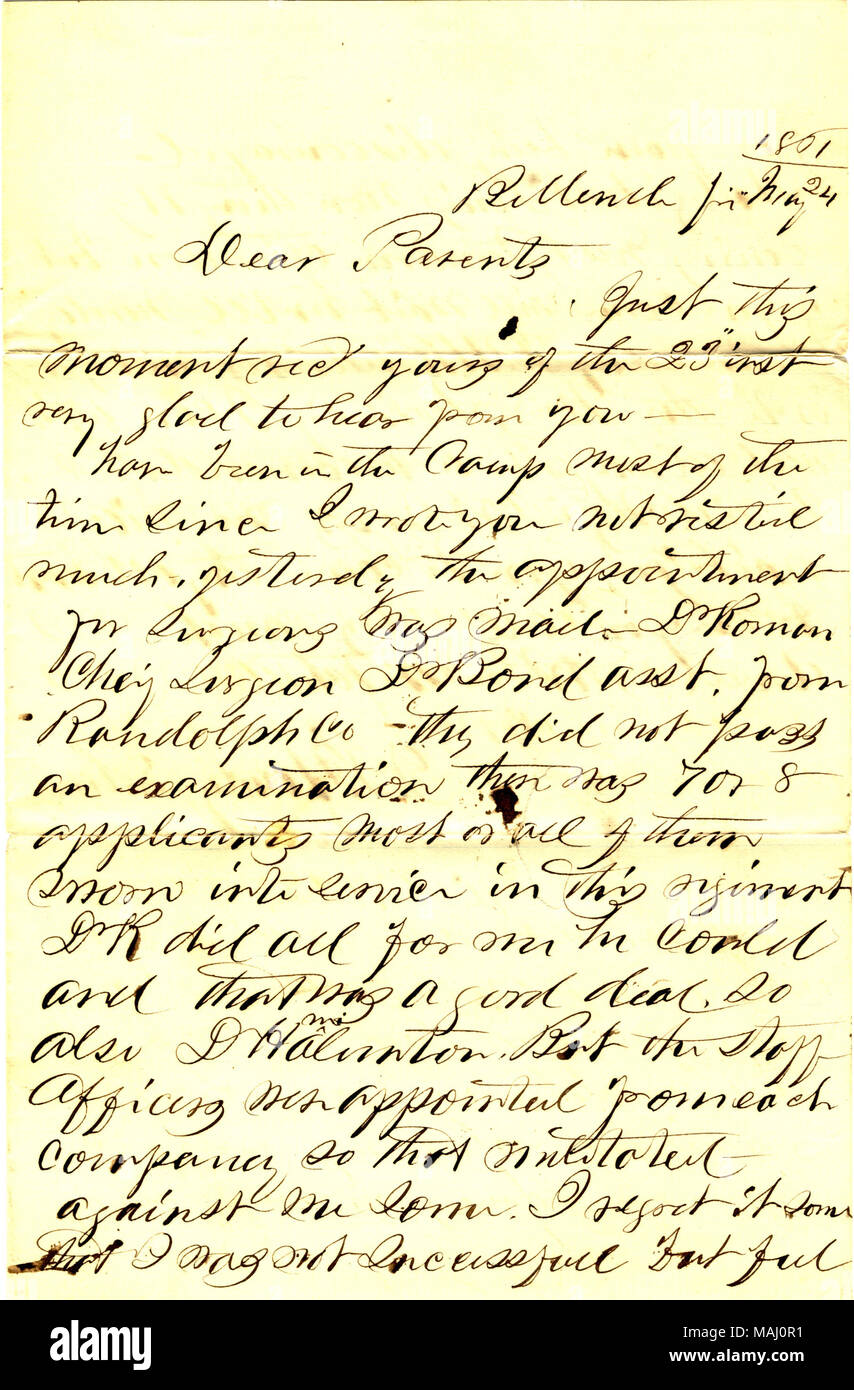 1861
Belleville fri May 24
Dear Parents
Just this
moment recd yours of the 23" inst
very glad to hear from you —
have been in the Camp most of the
time since I wrote you not visited
much. yesterday the appointment
for surgeons was made — Dr Roman
Chief Surgeon Dr Bond asst. from
Randolph Co - they did not pass
an examination there was 7 or 8
applicants most or all of them
sworn into service in this regiment
Dr R did all for me he could
and that was a good deal. so
also Dr. But the staff
officers were appointed from each
company so that militated
against me some. I regret it some
that I was not Successfull but feel
alamy
Image ID: MAJ0R1
www.alamy.com